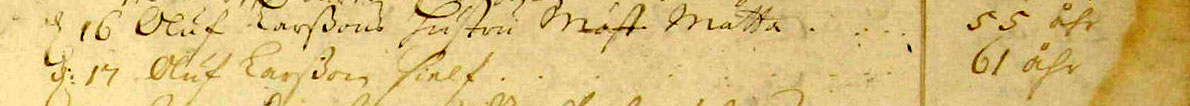 d 16 Oluf Larßons Hustru Måst Matta . . . . 55 åhr
d: 17 Oluf Larßon sielf . . . . . . . 61 åhr